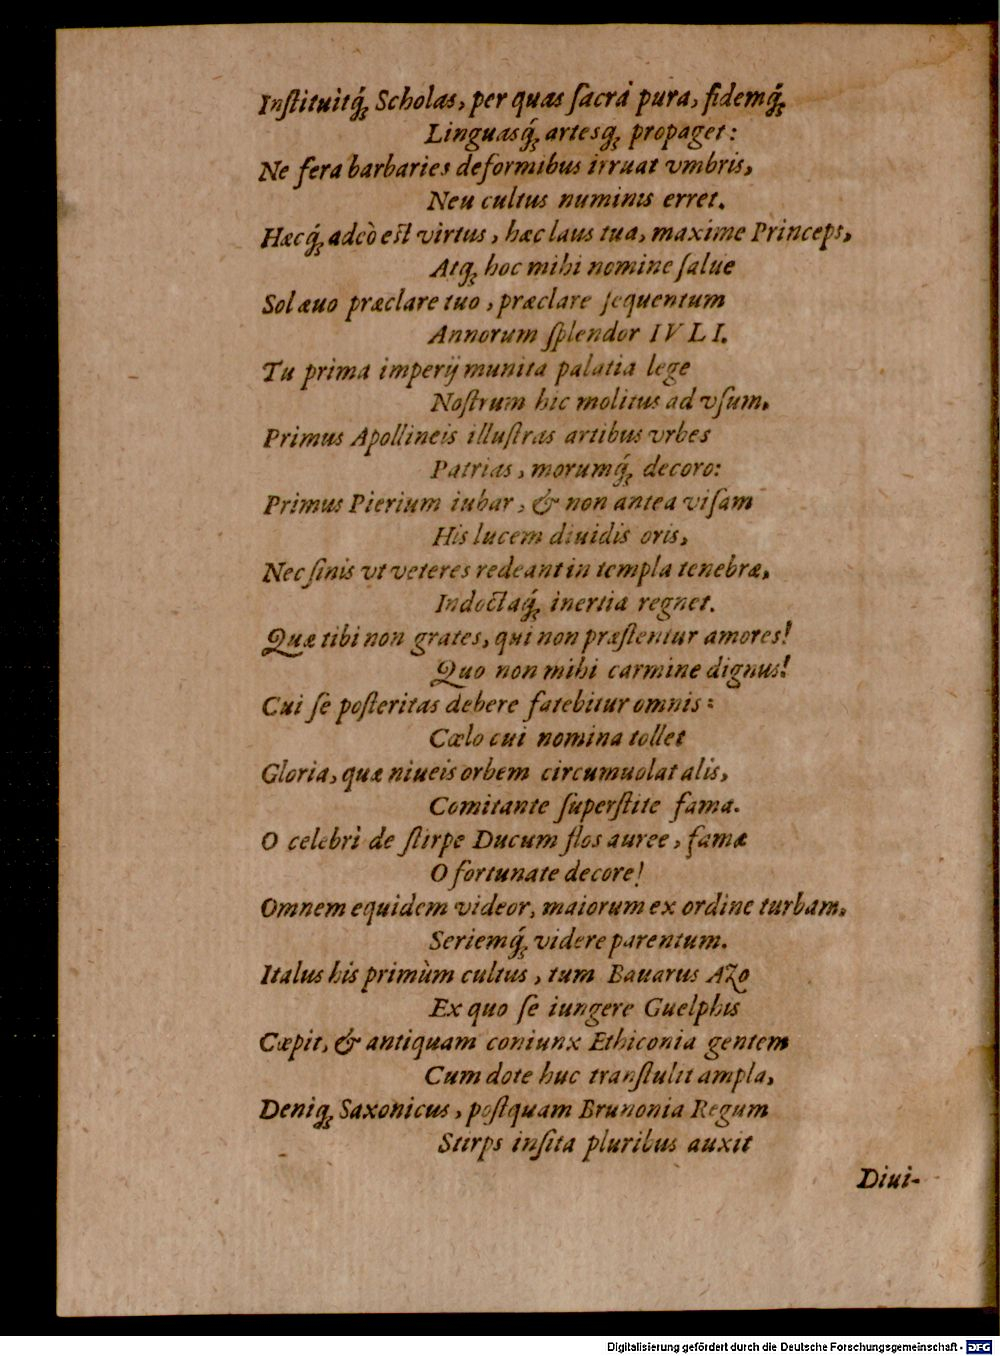 Inſtituitq́; Scholas, per quas ſacra pura, fidemq́;
Linguasq́; artesq; propaget:
Ne fera barbaries deformibus irruat vmbris,
Neu cultus numinis erret.
Hæcq́; adeò est virtus, hæc laus tua, maxime Princeps,
Atq; hoc mihi nomine ſalue
Sol æuo præclare tuo, præclare ſequentum
Annorum ſplendor IVLI.
Tu prima imperij munita palatia lege
Noſtrum hic molitus ad vſum.
Primus Apollineis illuſtras artibus vrbes
Patrias, morumq́; decoro:
Primus Pierium iubar, & non antea viſam
His lucem diuidis oris,
Nec ſinis vt veteres redeant in templa tenebræ,
Indoctaq́; inertia regnet.
Quæ tibi non grates, qui non præſtentur amores!
Quo non mihi carmine dignus!
Cui ſe poſteritas debere fatebitur omnis:
Cœlo cui nomina tollet
Gloria, quæ niueis orbem circumuolat alis,
Comitante ſuperſtite fama.
O celebri de ſtirpe Ducum flos auree, famæ
O fortunate decore!
Omnem equidem videor, maiorum ex ordine turbam,
Seriemq́; videre parentum.
Italus his primùm cultus, tum Bauarus Azo
Ex quo ſe iungere Guelphis
Cæpit, & antiquam coniunx Ethiconia gentem
Cum dote huc tranſtulit ampla,
Deniq; Saxonicus, poſtquam Brunonia Regum
Stirps inſita pluribus auxit
Diui-
Digitalisierung gefördert durch die Deutsche Forschungsgemeinschaft - DFG